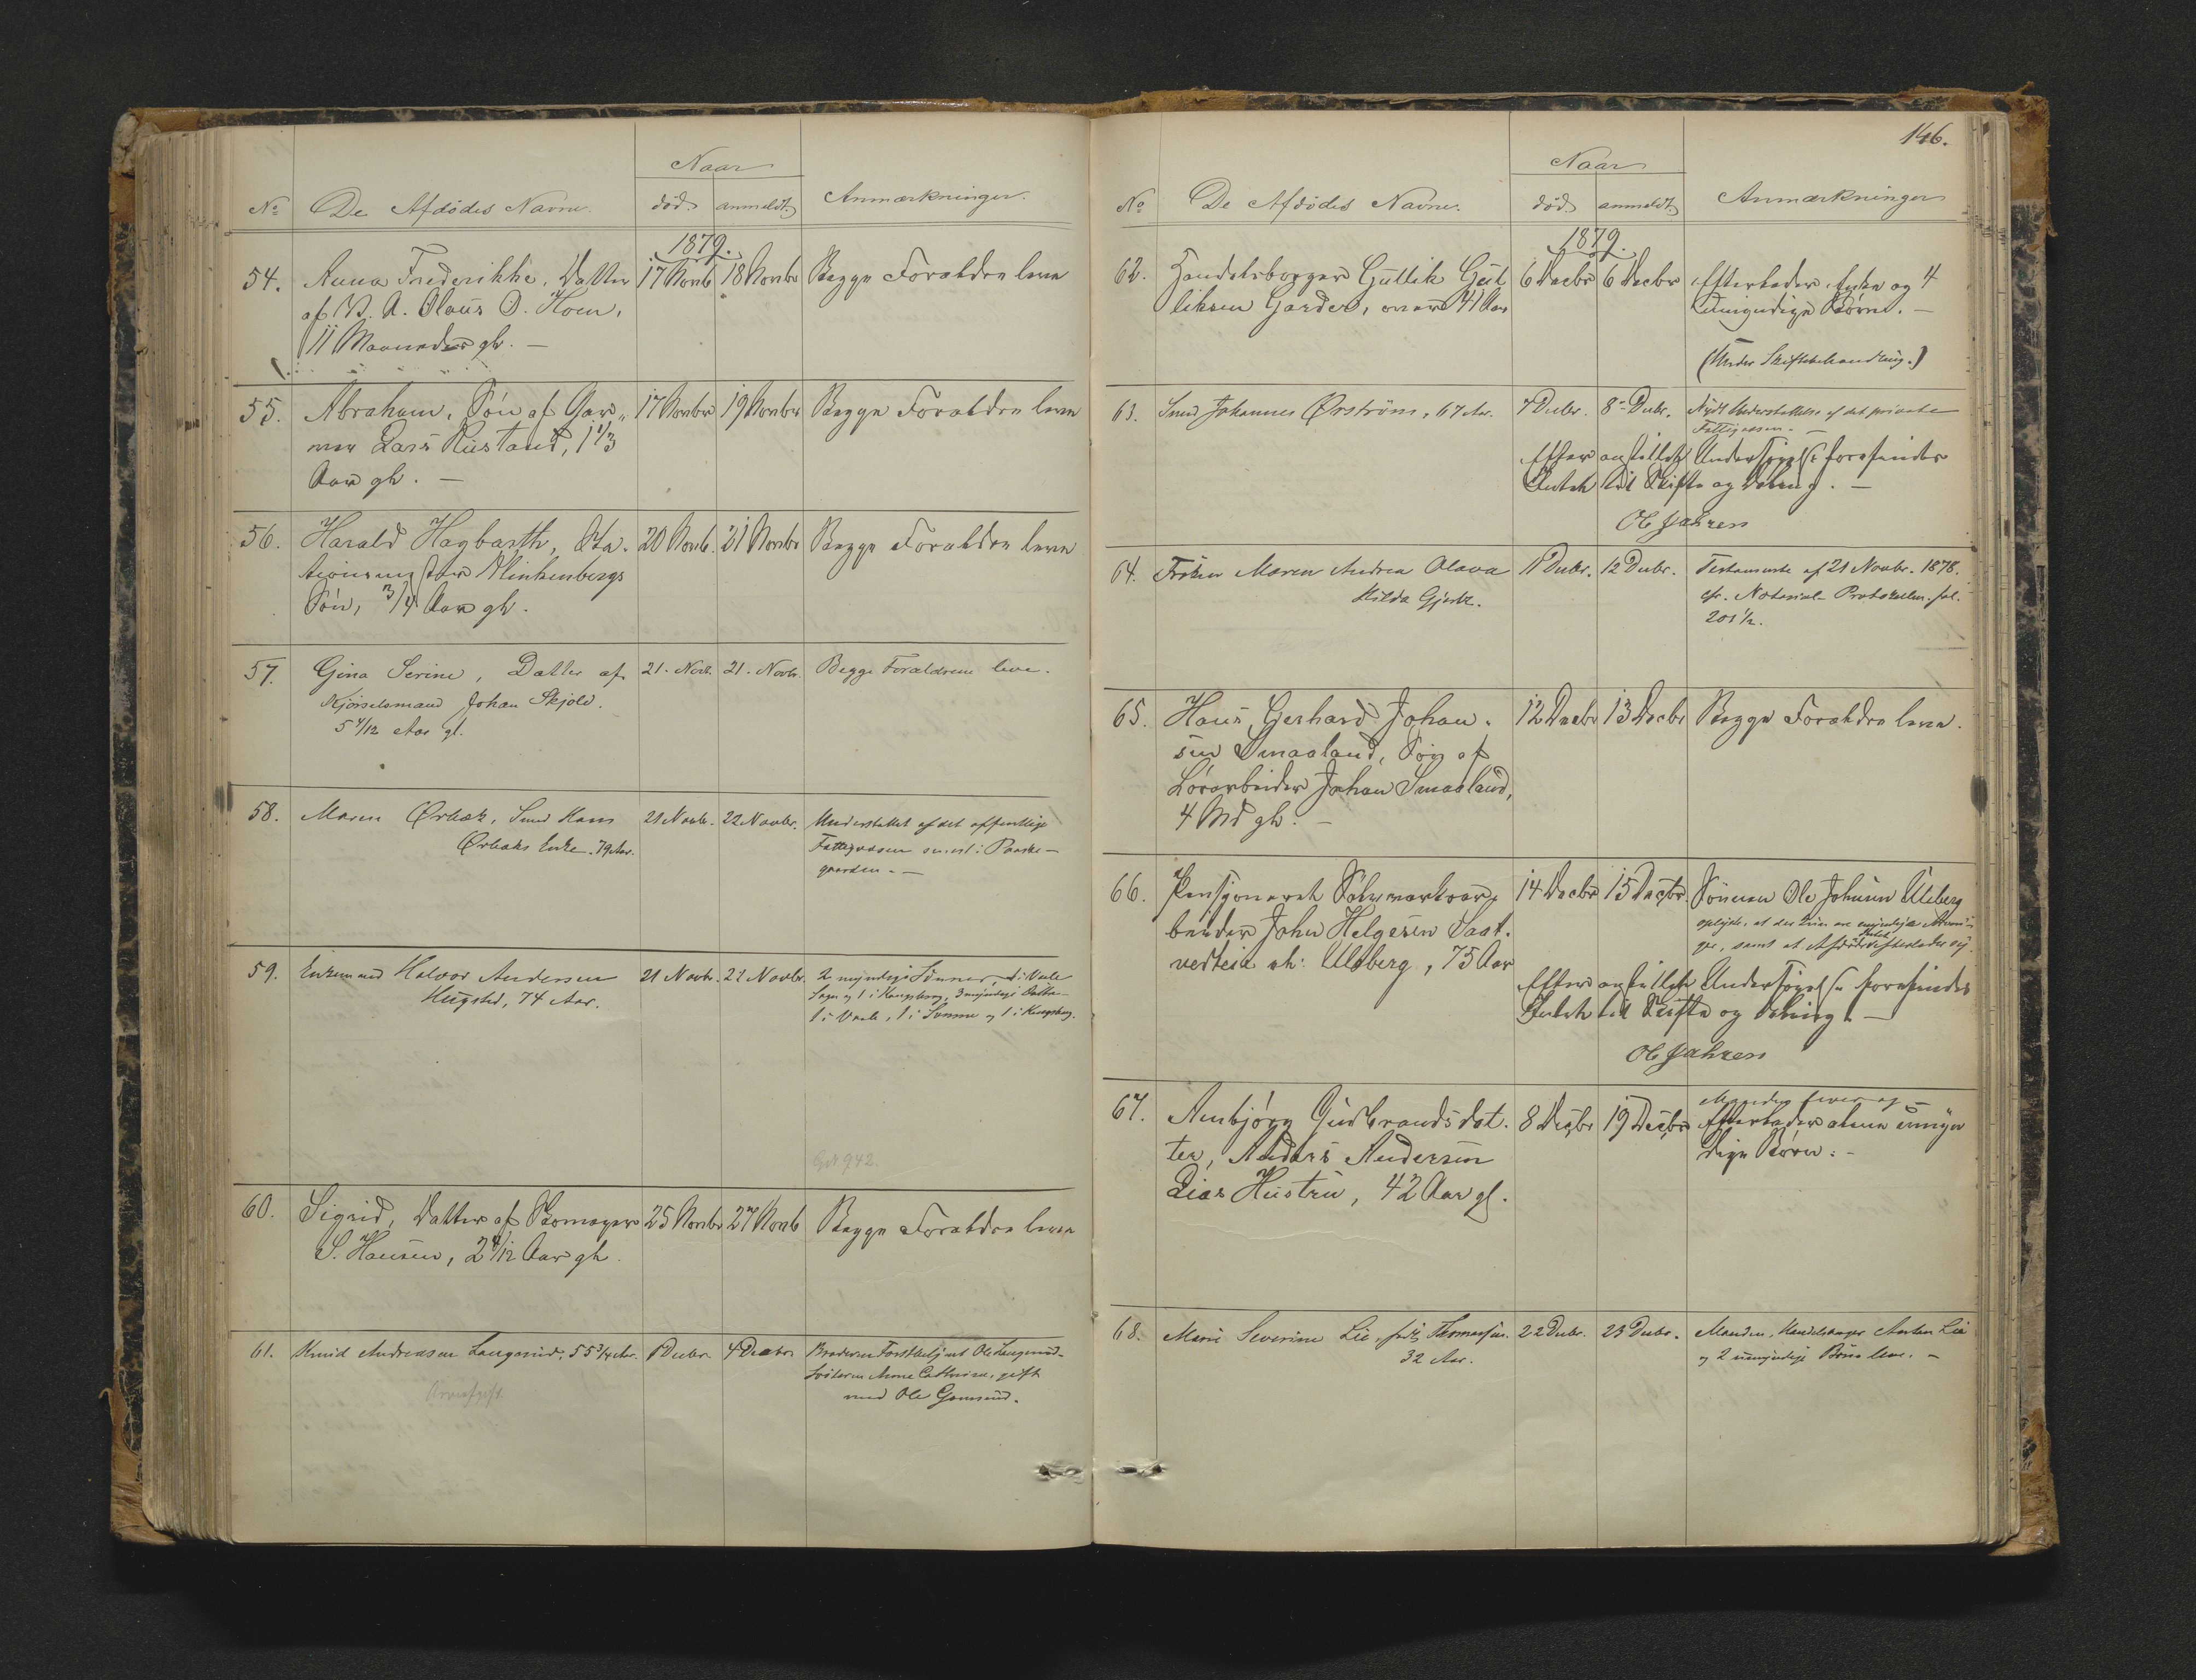 Naar
No De Afdødes Navne. død. anmeldt. Anmærkninger.
1879.
54. Anna Frederikke, Datter 17 Novb 18 Novbr Begge Forældre leve
af B. A. Olaus O. Hoen,
11 Maaneder gl. —
55. Abraham, Søn af Gar- 17 Novbr 19 Novbr Begge Forældre leve
ver Lars Rustand, 1 1/3
Aar gl. —
56. Harald Hagbarth, Sta- 20 Novb. 21 Novbr Begge Forældre leve
tionsmester Klinkenbergs
Søn, 3/4 Aar gl.
57. Gina Serine, Datter af 21. Novb. 21. Novbr. Begge Forældrene leve.
Kjørselsmand Johan Skjold.
5 4/12 Aar gl.
58. Maren Ørbæk, Smed Hans 21 Novbr. 22 Novbr. Understøttet af det offentlige
Ørbæks Enke. 79 Aar. Fattigvæsen
gaarden. —
59. Enkemand Halvor Andersen 21 Novbr. 22 Novbr. 2 myndige Sønner, 1 i
Hugsted, 74 Aar. og 1 i Kongsberg, 3 myndige Døtre
1 i 1 i og 1 i Kongsberg.
Get 942.
60. Sigrid, Datter af Bomager 25 Novbr 27 Novb Begge Forældre leve
S. Hansen, 2 4/12 Aar gl.
61. Knud Andreasen Langerud, 55 3/4 Aar. 1 Decbr. 4 Decbr. Broderen Forstbetjent Ole Langerud
Søsteren Anne Cathrine, gift
med Ole
Arveafgift
146.
Naar
No De Afdødes Navne. død. anmeldt. Anmærkninger
1879.
62. Handelsborger Gullik Gul 6 Decbr 6 Decbr Efterlader Enke og 4
liksen Garder, 41 Aar umyndige Børn. —
(Under Skiftebehandling.)
63. Smed Johannes Ørström, 67 Aar. 7 Decbr. 8 Decbr. Nydt Understøttelse af det private
Fattigvæsen. —
Efter anstillet Undersøgelse forefindes
Intet til Skifte og Deling. —
Ol Jahren
64. Frøken Maren Andrea Olava 11 Decbr. 12 Decbr. Testamente af 21 Novbr. 1878.
Hilda Gjerk. cfr. Notarial-Protokollen fol.
201 1/2.
65. Hans Gerhard Johan- 12 Decbr 13 Decbr Begge Forældre leve.
sen Smaaland, Søn af
Løsarbeider Johan Smaaland,
4 Md gl. —
66. Pensjoneret Sølvverksar- 14 Decbr 15 Decbr. Sønnen Ole Johnsen Ulleberg
beider John Helgesen Saat- oplyste, at der kun er myndige Arvin-
vedteia ell: Ulleberg, 75 Aar ger, samt at Afdøde Intet efterlader sig.
Efter anstillet Undersøgelse forefindes
Intet til Skifte og Deling. —
Ol Jahren
67. Anbjørg Gudbrandsdat- 8 Decbr 19 Decbr Manden lever og —
ter, Anders Andersen Efterlader alene umyn
Lias Hustru, 42 Aar gl. dige Børn. —
68. Marie Severine Lie, født Thomassen. 22 Decbr. 23 Decbr. Manden, Handelsborger Anton Lie
32 Aar. og 2 umyndige Børn leve. —